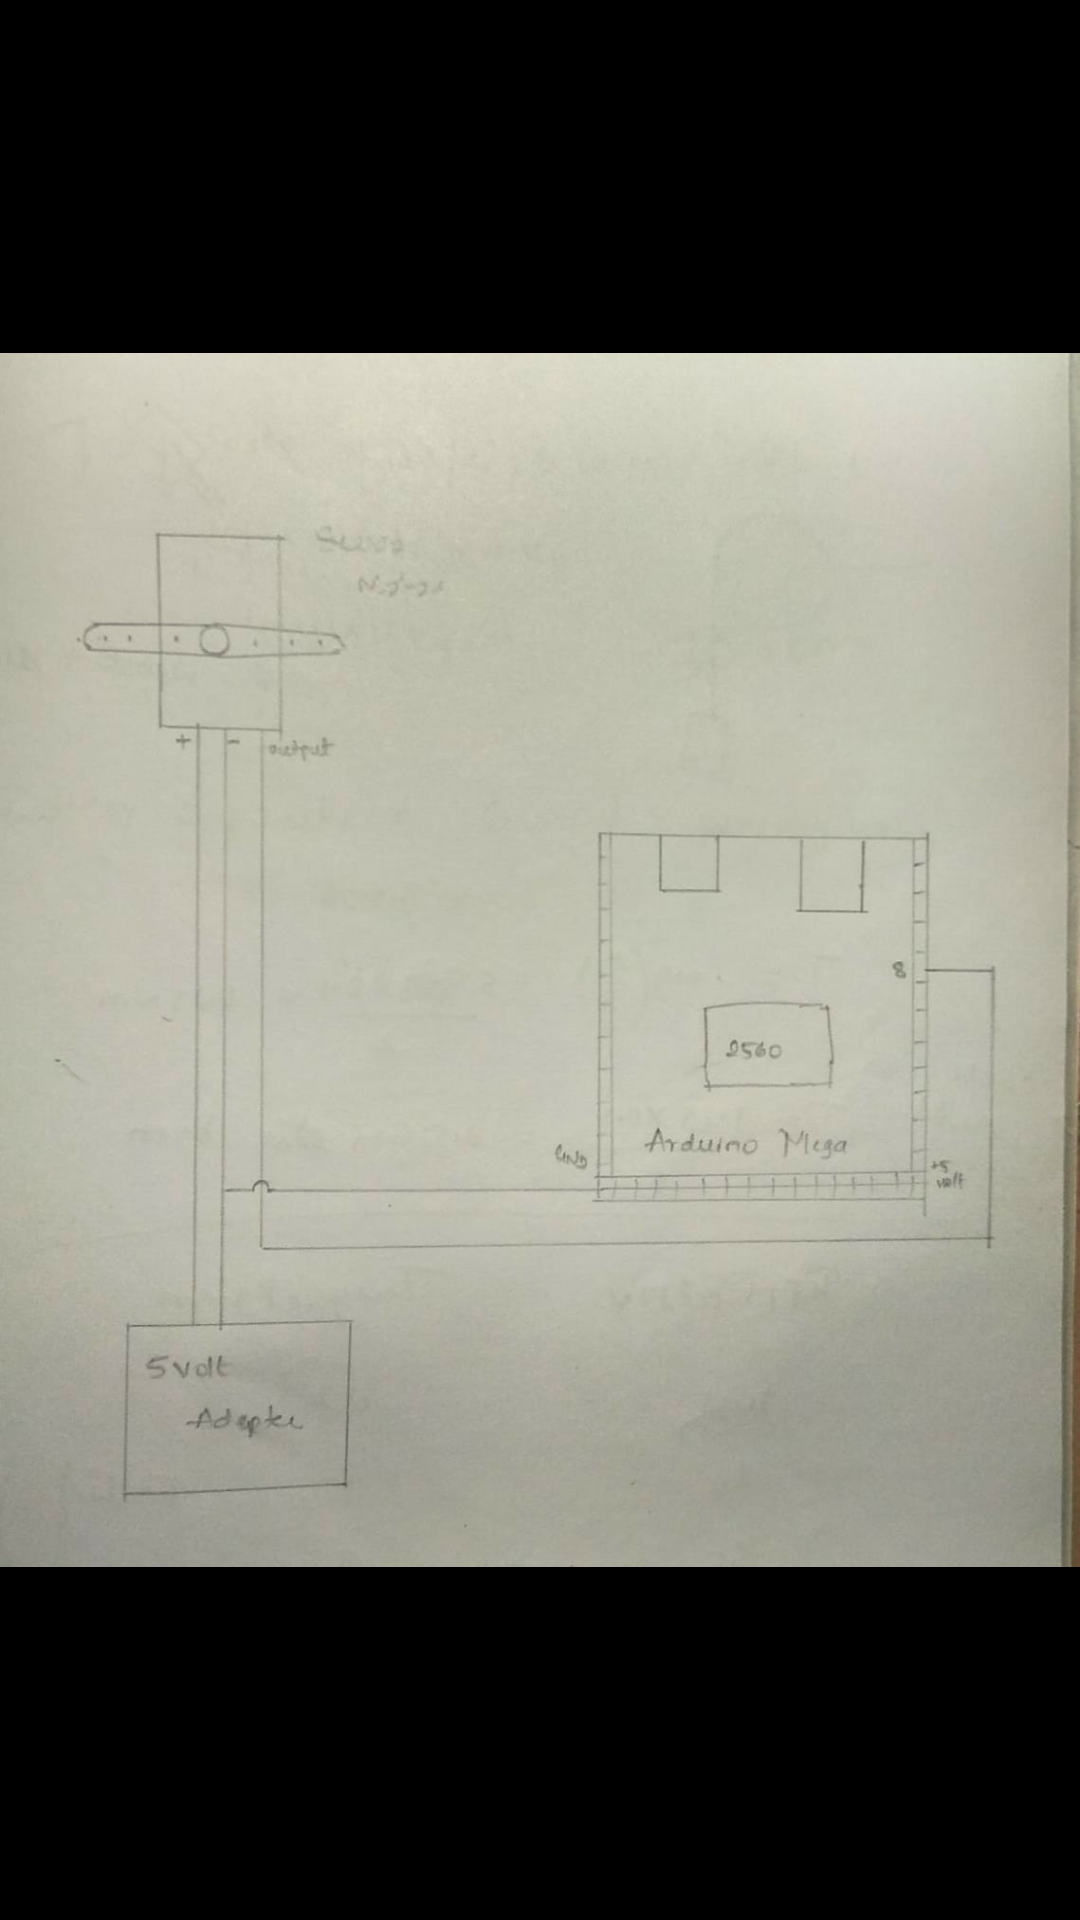 Servo
+
-
output
8
2560
Arduino Mega
GND
+5
volt
5 volt
Adapter